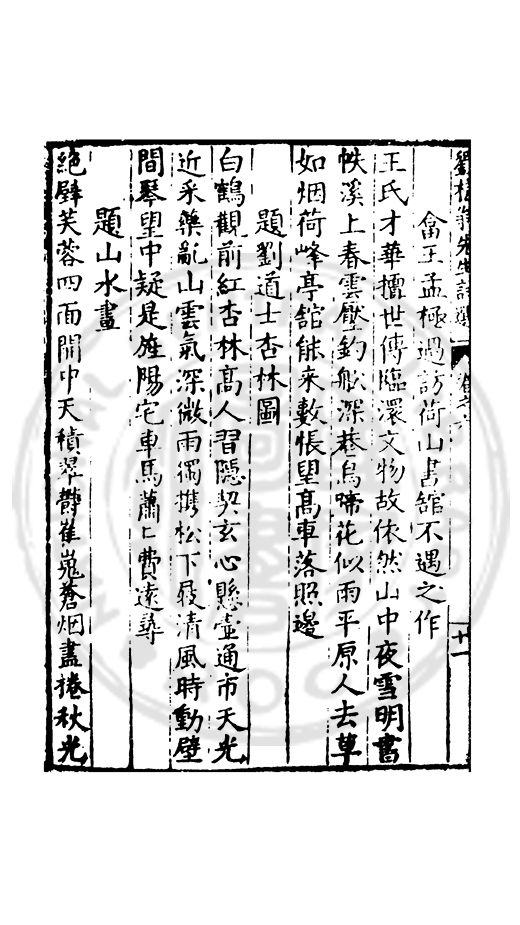 劉槎翁先生詩選 卷之 十一
畣王孟極過訪荷山書舘不遇之作
王氏才華擅世傳臨澴文物故依然山中夜雪明書
帙溪上春雲壓釣舩深巷鳥啼花似雨平原人去草
如烟荷峰亭舘能來數悵望髙車落照邊
題劉道士杏林圖
白鶴觀前紅杏林髙人習隱契玄心懸壺通市天光
近采藥亂山雲氣深微雨獨攜松下屐清風時動壁
間琴望中疑是旌陽宅車馬蕭〻費遠尋
題山水畫
絕壁芙蓉四面開中天積翠欝崔嵬蒼烟盡捲秋光